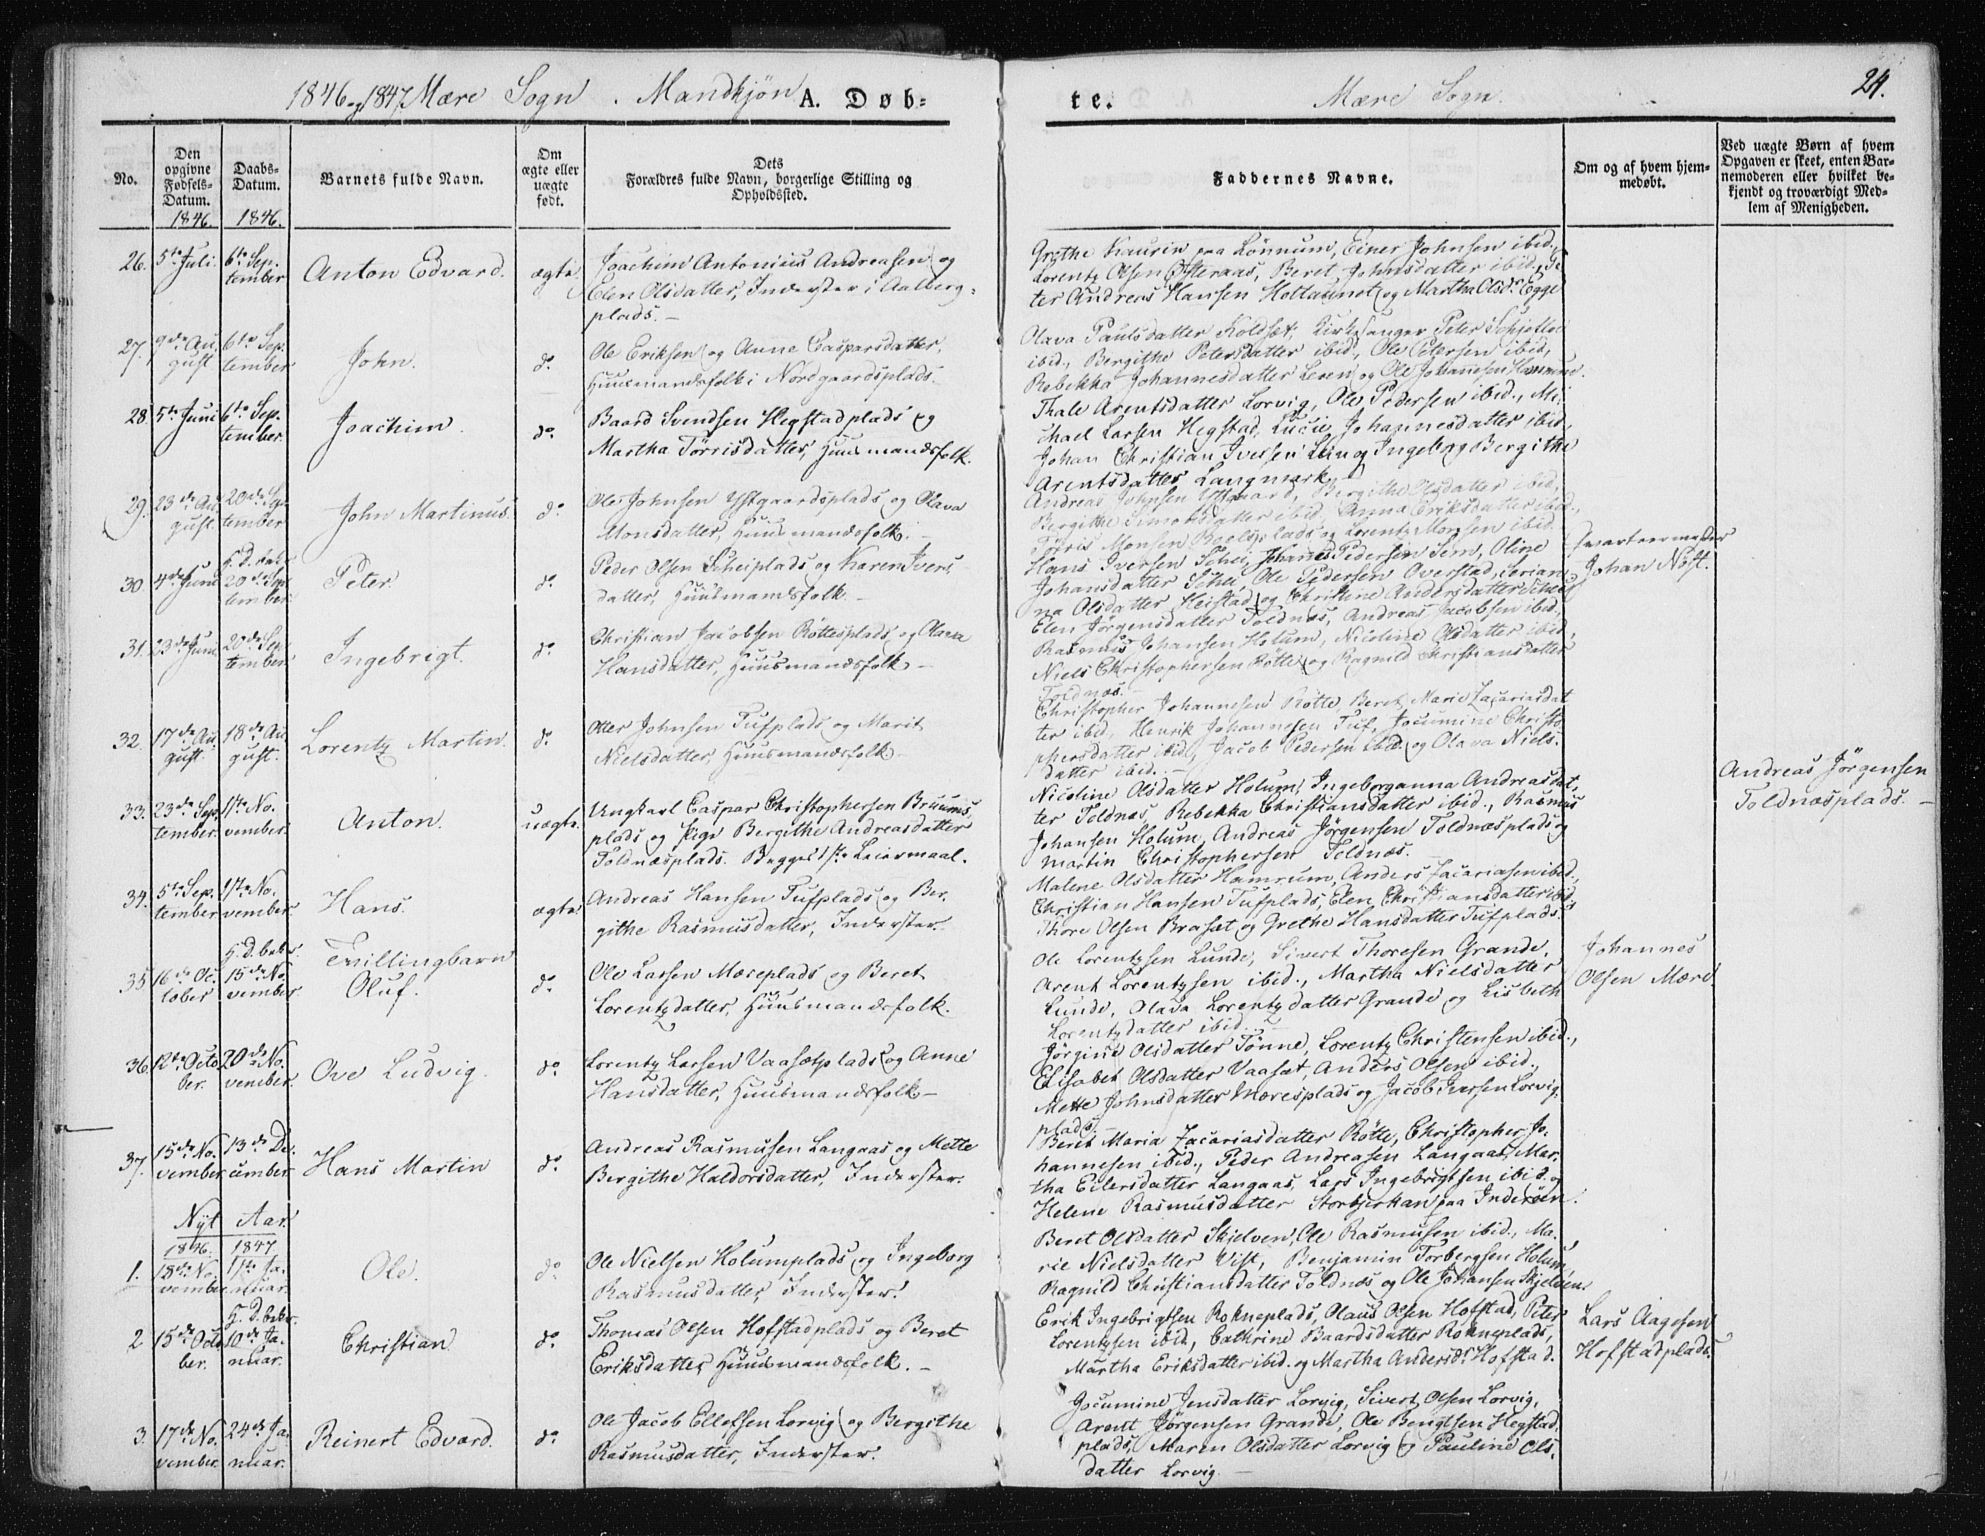 1846 og 1847. Mære Sogn. Mandkjøn A. Døb-
te. Mære Sogn. 24.
No.
Den opgivne Fødsels-Datum. 1846.
Daabs-Datum. 1846.
Barnets fulde Navn.
Om ægte eller uægte født.
Dets Forældres fulde Navn, borgerlige Stilling og Opholdssted.
Faddernes Navne.
Om og af hvem hjem-
medøbt.
Ved uægte Børn af hvem
Opgaven er skeet, enten Bar-
nemoderen eller hvilket be-
kjendt og troværdigt Med-
lem af Menigheden.
26. 5te Juli 6te Sep-
tember Anton Edvard. ægte
Joachim Antonius Andreasen og
Elen Olsdatter, Inderster i Aalberg-
plads. -
Grethe Kaurin paa Lønnum, Einer Johnsen ibid.,
Lorentz Olsen Østeraas, Beret Johnsdatter ibid., Pe-
ter Andreas Hansen og Martha Olsdr. Egge
27. 9de Au-
gust 6te Sep-
tember John. do.
Ole Eriksen og Anne Caspersdatter,
Huusmandsfolk i Nordgaardsplads.
Olava Paulsdatter Koldset, Kirkesanger Peter Schjette
ibid., Bergithe Petersdatter ibid., Ole Petersen ibid.,
Rebekka Johannesdatter Leren og Ole Johannesen Hammer.
28. 5te Juni 6te Sep-
tember. Joachim. do.
Baard Svendsen Hegstadplads og
Martha Tørrisdatter, Huusmandsfolk.
Thale Arentsdatter Lorvig, Ole Pedersen ibid., Mi-
chael Larsen Hegstad, Lucie Johannesdatter ibid.,
Johan Christian Iversen Lein og Ingeborg Bergithe
Arentsdatter Langmark.
29. 23de Au-
gust. 20de Sep-
tember John Martinus. do.
Ole Johnsen Ystgaardsplads og Olava
Monsdatter, Huusmandsfolk. -
Andreas Johnsen Ystgaard, Bergithe Olsdatter ibid.,
Bergithe Simonsdatter ibid., Anna Eriksdatter ibid.,
Tørris Monsen og Lorentz Monsen ibid.
30 4de Juni H. D. bekr.
20de Sep-
tember. Peter. do.
Peder Olsen Scheiplads og Karen Ivers-
datter, Huusmandsfolk. -
Hans Iversen Schei, Johannes Pedersen Sem, Oline
Johansdatter Schei, Ole Pedersen Overstad,
na Olsdatter Heistad og Christine Andersdatter Schei.
Johan Nøst.
31. 23de Juni 20de Sep-
tember. Ingebrigt. do.
Christian Jacobsen Røttesplads og Olava
Hansdatter, Huusmandsfolk. -
Elen Jørgensdatter Toldnæs, Andreas Jacobsen ibid.,
Rasmus Johansen Holum, Nicoline Olsdatter ibid.,
Niels Christophersen Røtte og Ragnild Christiansdatter
Toldnæs. -
32. 17de Au-
gust. 18de Au-
gust. Lorentz Martin. do.
Johnsen Tufplads og Marit
Nielsdatter, Huusmandsfolk. -
Christopher Johannesen Røtte, Beret Marie Zacariasdat-
ter ibid., Henrik Johannesen Tuf, Jocumine Christo-
phersdatter ibid., Jacob Pedersen ibid. og Olava Niels-
datter ibid. -
33. 23de Sep-
tember. 1ste No-
vember. Anton. uægte.
Ungkarl Caspar Christophersen Bruums-
plads og Pige Bergithe Andreasdatter
Toldnæsplads. Begges 1ste Leiermaal.
Nicoline Olsdatter Holum, Ingeboranna Andreasdat-
ter Toldnæs, Rebekka Christiansdatter ibid., Rasmus
Johansen Holum, Andreas Jørgensen Toldnæsplads og
Martin Christophersen Toldnæs.
Andreas Jørgensen
Toldnæsplads. -
34. 5te Sep-
tember 1ste No-
vember. Hans. ægte.
Andreas Hansen Tufplads og Ber-
githe Rasmusdatter, Inderster.
Malene Olsdatter Hamrum, Anders Zacariasen ibid.,
Christian Hansen Tufplads, Elen Christiansdatter ibid.,
Thore Olsen Braset og Grethe Hansdatter Tufplads.
35 16de Oc-
tober H. D. bekr.
15de No-
vember. Tvillingbarn
Oluf. do.
Ole Larsen Mæreplads og Beret
Lorentzdatter, Huusmandsfolk.
Ole Lorentzsen Lunde, Sivert Thoresen Grande,
Arent Lorentzsen ibid., Martha Nielsdatter
Lunde, Olava Lorentzdatter Grande og Lisbeth
Lorentzdatter ibid. -
Johannes
Olsen Mære.
36. 12te Octo-
ber. 20de No-
vember. Ove Ludvig. do.
Lorentz Larsen Vaasætplads og Anne
Hansdatter, Huusmandsfolk. -
Jørgine Olsdatter Tønne, Lorentz Christensen ibid.,
Elisabet Olsdatter Vaasæt, Anders Olsen ibid.,
Mette Johnsdatter Mæresplads og Jacob Iversen Lorvig-
plads.
37. 15de No-
vember. 13de De-
cember. Hans Martin do.
Andreas Rasmusen Langaas og Mette
Bergithe Haldorsdatter, Inderster.
Beret Maria Zacariasdatter Røtte, Christopher Jo-
hannesen ibid., Peder Andreasen Langaas, Mar-
tha Eilersdatter Langaas, Lars Ingebrigtsen ibid. og
Helene Rasmusdatter Storbjerkan paa Inderøen.
Nyt Aar.
1846. 1847
1. 18de No-
vember 1ste Ja-
nuar. Ole. do.
Ole Nielsen Holumplads og Ingeborg
Rasmusdatter, Inderster.
Beret Olsdatter Skjelven, Ole Rasmusen ibid., Ma-
rie Nielsdatter Vist, Benjamin Torbergsen Holum,
Ragnild Christiansdatter Toldnæs og Ole Johansen Skjelven.
2 15de Octo-
ber. H. D. bekr.
10de Ja-
nuar. Christian. do.
Thomas Olsen Hofstadplads og Beret
Eriksdatter, Huusmandsfolk. -
Erik Ingebrigtsen Rokneplads, Olaus Olsen Hofstad, Peter
Lorentzsen ibid., Cathrine Baardsdatter Rokneplads,
Martha Eriksdatter ibid. og Martha Andersdr. Hofstad.
Lars Aagesen
Hofstadplads.
3. 17de No-
vember. 24de Ja-
nuar. Reinert Edvard. do.
Ole Jacob Ellefsen Lorvig og Bergithe
Rasmusdatter, Inderster.
Jocumine Jensdatter Lorvig, Sivert Olsen Lorvig,
Arent Jørgensen Grande, Ole Bengtsen Hegstad-
plads, Maren Olsdatter Lorvig og Pauline Ols-
datter Lorvig. -